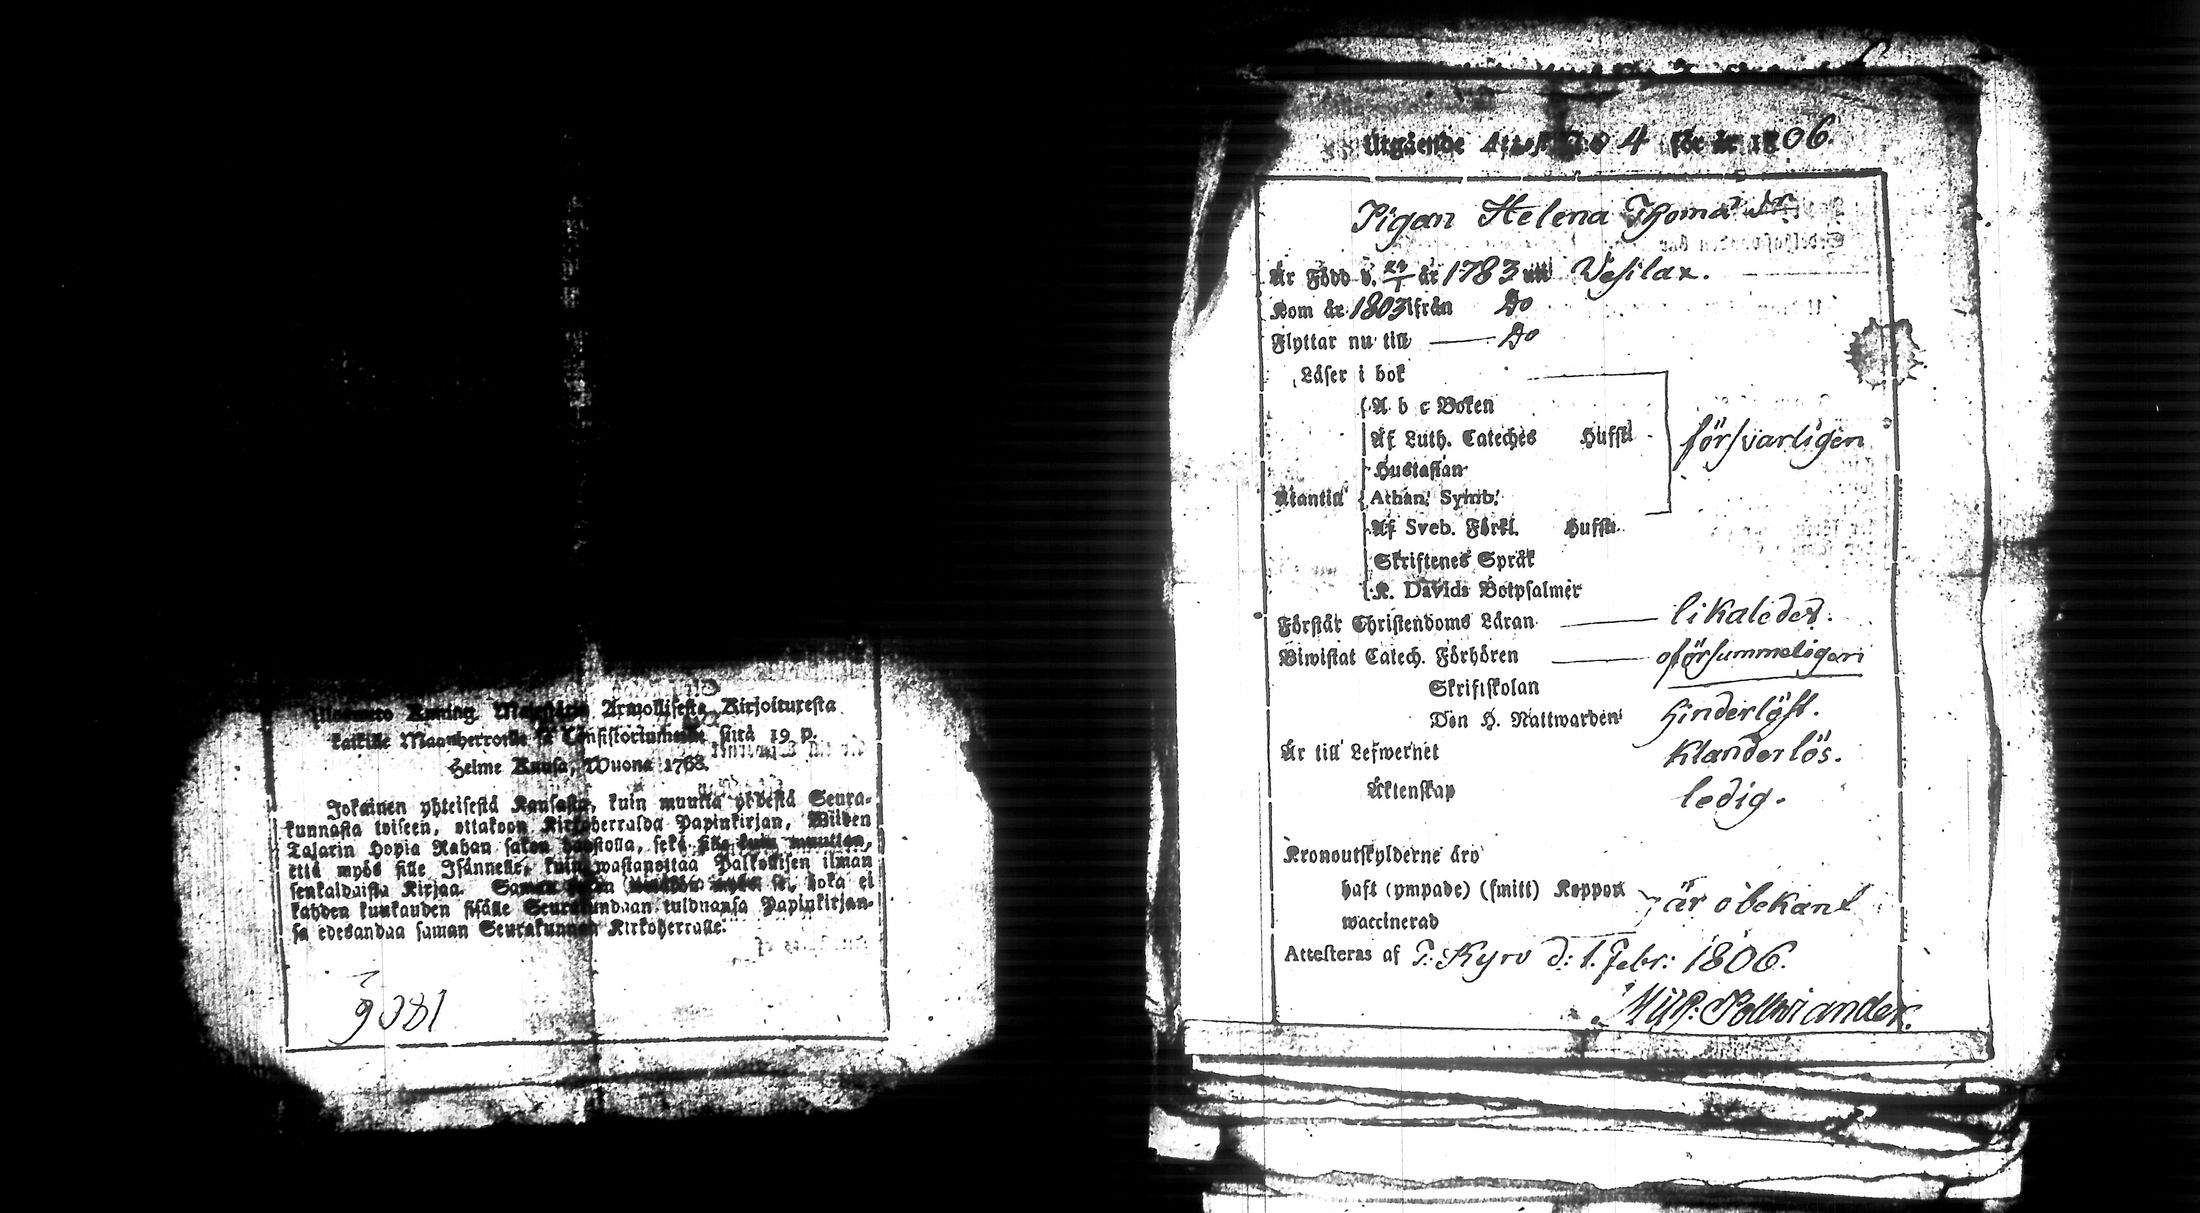 Kuning. Armollisesta Kirjoituxesta
kaikille Maanherroille ja Consistoriumeille siitä 19 p.
Helme Kuusa, Wuona 1768.
Jokainen yhteisestä Kansasta, kuin muutta yhdestä Seura-
kunnasta toiseen, ottakoon Kirkoherralda Papinkirjan, Wiiden
Talarin Hopia Rahan sakon haastolla, sekä sille kuin muuttaa,
että myös sille Isännelle, kuin wastanottaa Palkollisen ilman
senkaldaista Kirjaa. Saman sakon myös se, joka ei
kahden kuukauden sisälle Seurakundaan tulduansa Papinkirjan-
sa edesandaa saman Seurakunnan Kirkoherralle.
Utgående Attest N:o 4 för år 1806.
Pigan Helena Thomæ Dr.
Är Född d. år 1783 uti Vesilax.
Kom år 1803 ifrån Do
Flyttar nu till Do
Läser i bok
A b c Boken
Af Luth. Cateches Hufst. försvarligen
Hustaflan
Utantill Athan. Symb.
Af Sveb. Förkl. Hufst.
Skriftenes Språk
K. Davids Botpsalmer
Förstår Christendoms Läran likaledes.
Biwistat Catech. Förhören oförsummeligen
Skriftskolan
Den H. Nattwarden hinderlöst.
Är till Lefwernet klanderlös.
Äktenskap ledig.
Kronoutskylderne äro
haft (ympade) (smitt) Koppor är obekant
waccinerad
Attesteras af T. Kyro d: 1. Febr: 1806.